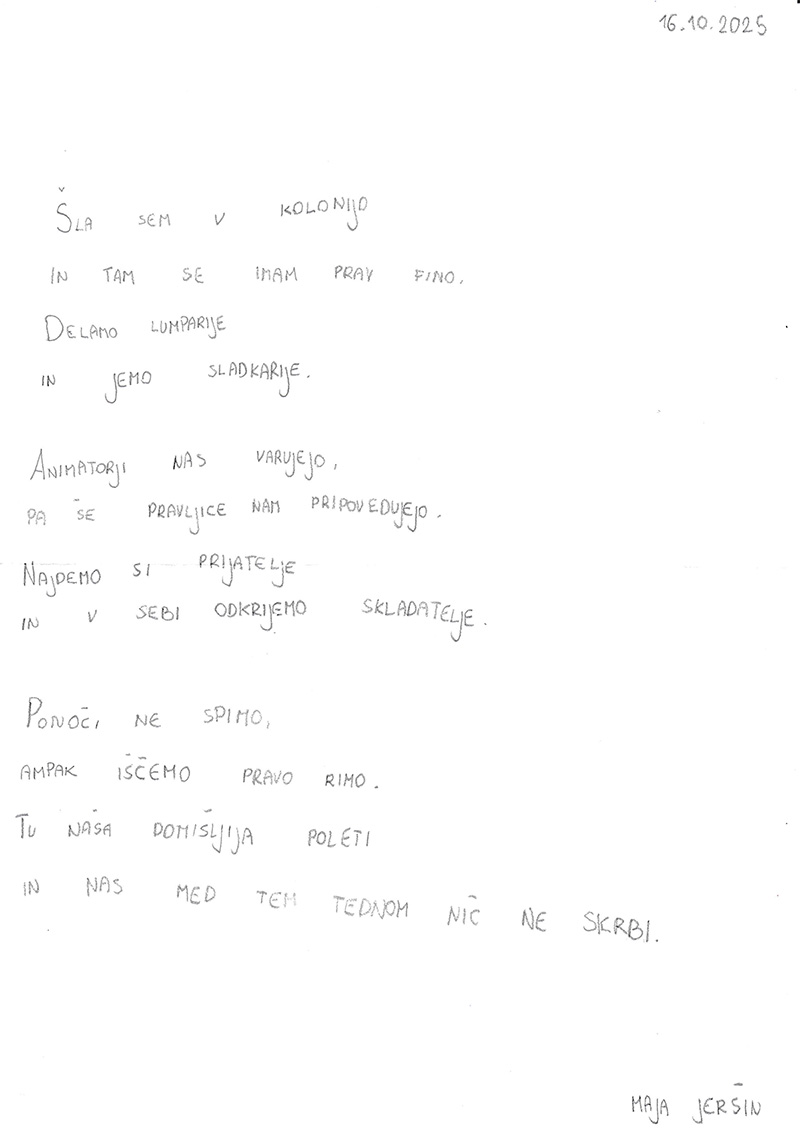 16.10.2025
ŠLA SEM V KOLONIJO
IN TAM SE IMAM PRAV FINO.
DELAMO LUMPARIJE
IN JEMO SLADKARIJE.
ANIMATORJI NAS VARUJEJO,
PA ŠE PRAVLJICE NAM PRIPOVEDUJEJO.
NAJDEMO SI PRIJATELJE
IN V SEBI ODKRIJEMO SKLADATELJE.
PONOČI NE SPIMO,
AMPAK IŠČEMO PRAVO RIMO.
TU NAŠA DOMIŠLJIJA POLETI
IN NAS MED TEM TEDNOM NIČ NE SKRBI.
MAJA JERŠIN